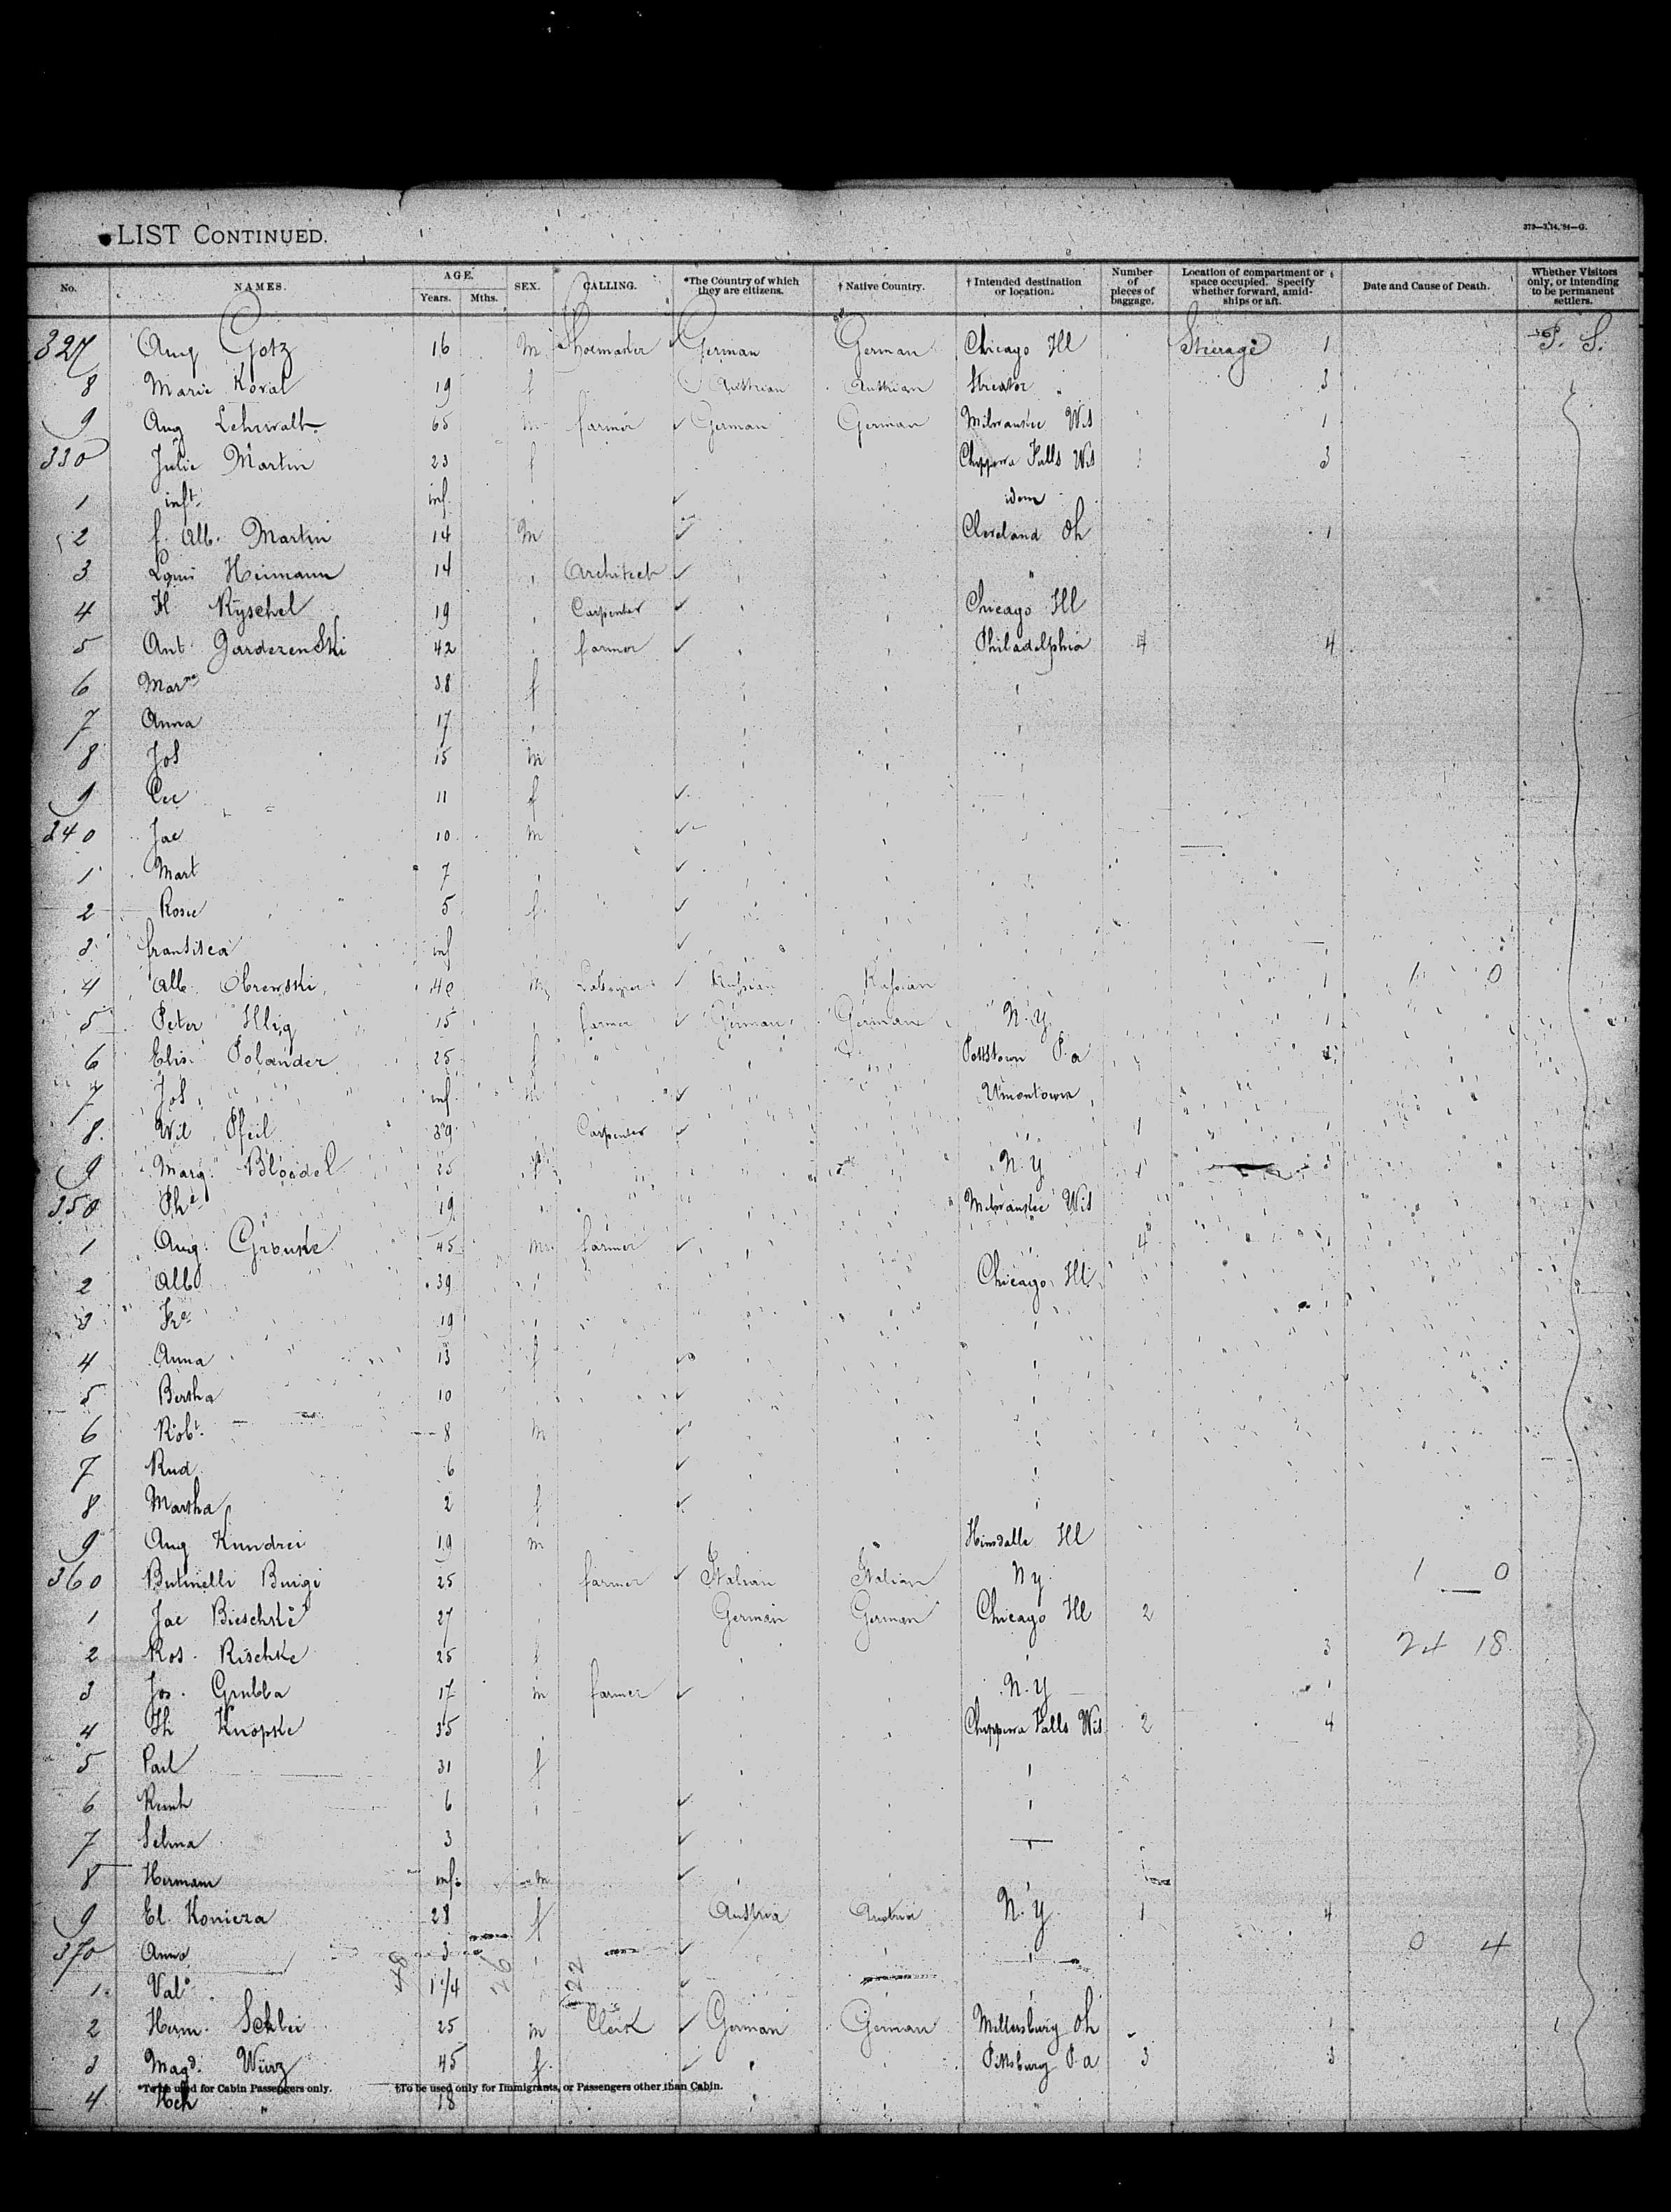 LIST CONTINUED.
373—3,14,'94—G.
No. NAMES. AGE. Years. Mths. SEX. CALLING. *The Country of which they are citizens. † Native Country. † Intended destination or location. Number of pieces of baggage. Location of compartment or space occupied. Specify whether forward, amidships or aft. Date and Cause of Death. Whether Visitors only, or intending to be permanent settlers.
327 Aug Gotz 16 m Shoemaker German German Chicago Ill Steerage 1 P. S.
8 Marie Koval 19 f Austrian Austrian Streator " 3
9 Aug Lehrwalt 65 m farmer German German Milwaukee Wis 1
330 Julie Martin 23 f Chippewa Falls Wis 1 3
1 inft. inf. idem
2 f. Alb. Martin 14 m Cleveland Oh 1
3 Louis Heimann 14 Architect "
4 H Ryschel 19 Carpenter Chicago Ill
5 Ant Gardezenski 42 farmer Philadelphia 4 4
6 Mar 38 f
7 Anna 17
8 Jos 15 m
9 Cec 11 f
240 Jac 10 m
1 Mart 7
2 Rosie 5 f
3 fransisca inf
4 Alb. Obrewski 40 m Russian Russian 1 1 0
5 Peter Illig 15 farmer German German N. Y. 1
6 Elis. Polander 25 f Pottstown Pa
7 Jos inf m Uniontown
8. Wil Pfeil 39 Carpenter 1 1
9 Marg. Bloodel 25 f N. Y 1 3
350 19 Milwaukee Wis
1 Aug. Grouke 45 m farmer 4 1
2 Alb 39 Chicago Ill
3 19
4 Anna 13 f
5 Bertha 10
6 Robt. 8 m
7 Rud 6
8 Martha 2 f
9 Aug Kundrei 19 m Hinsdalle Ill
360 Butinelli Buigi 25 farmer Italian Italian N y. 1 0
1 Jac Bieschke 27 German German Chicago Ill 2
2 Ros. Rischke 25 f 3 24 18
3 Jos. Grubba 17 m farmer N. Y 1
4 Th Knopke 35 Chippewa Falls Wis 2 4
5 Paul 31 f
6 6
7 Selma 3
8 Hermann inf. m
9 El. Konieza 28 f Austria Austria N. Y. 1 4
370 Anna 3 0 4
1. Val 1 1/4
48 26 22
2 Herm. Schlei 25 m Clerk German German Millersburg Oh 1
3 Magd. Würz 45 f Pittsburg Pa 3 3
*To be used for Cabin Passengers only. †To be used only for Immigrants, or Passengers other than Cabin.
4 Hch " 18